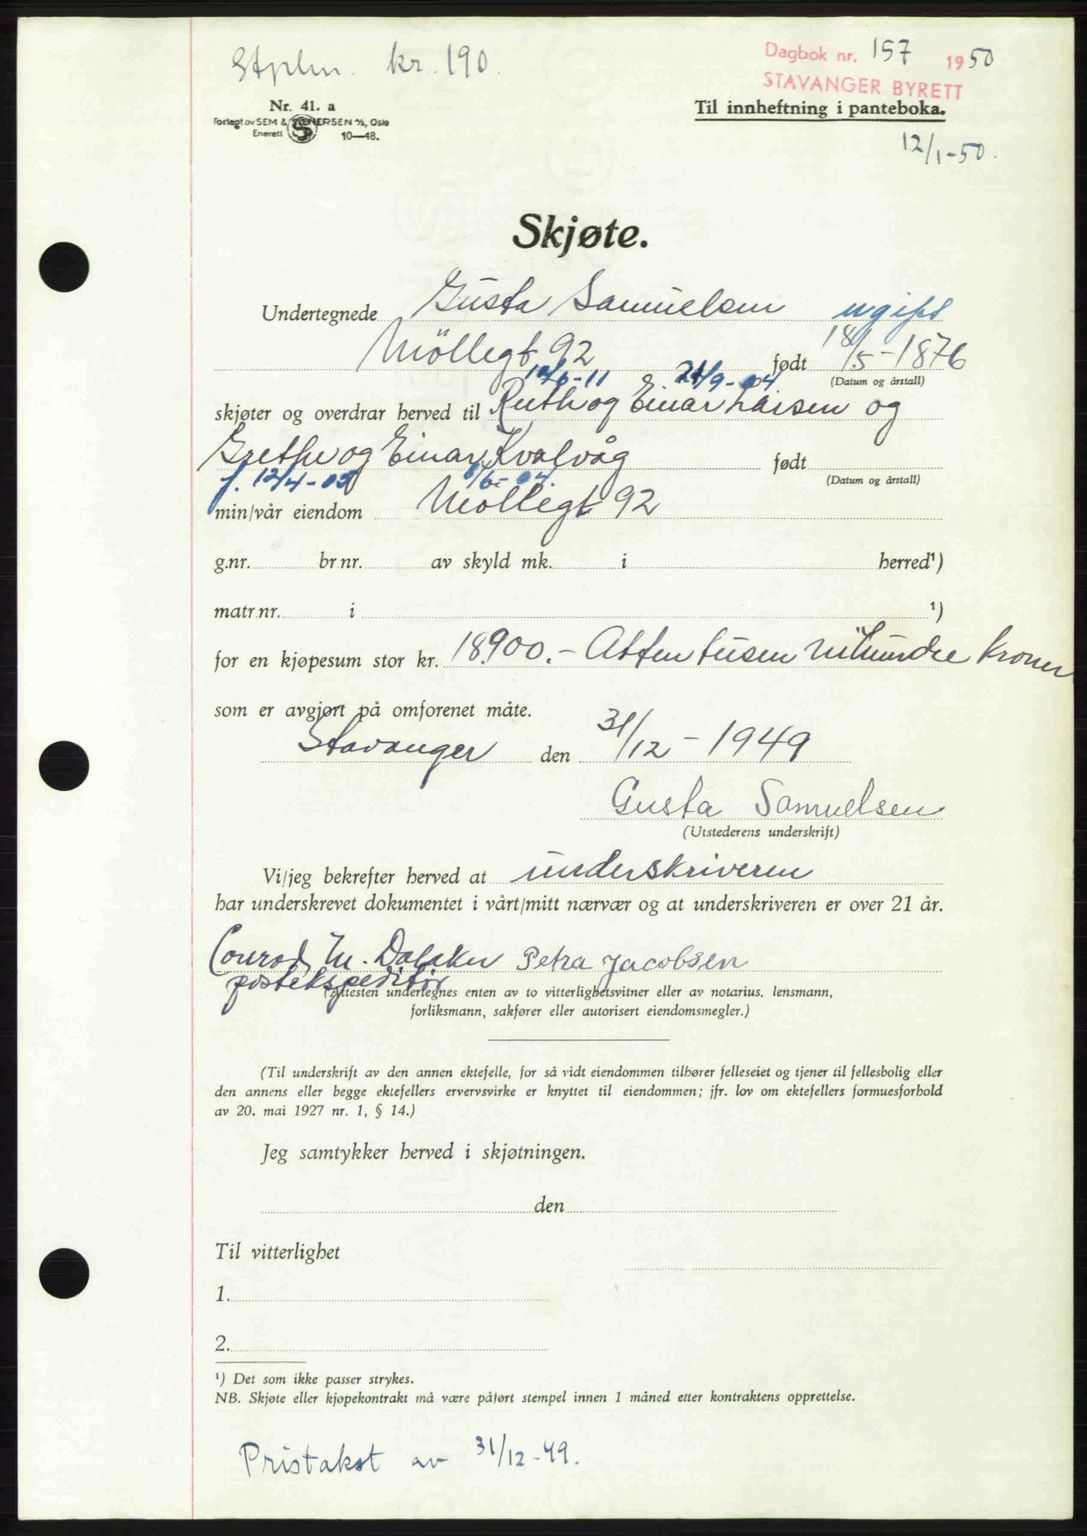 Stplm. kr. 190.
Dagbok nr. 157 1950
STAVANGER BYRETT
Nr. 41. a
Forlagt av SEM & STENERSEN A/S, Oslo
Enerett 10—48.
Til innheftning i panteboka.
12/1-50.
Skjøte.
Undertegnede Gusta Samuelsen ugift
Möllegt 92 født 18/5-1876
(Datum og årstall)
12/6-11 21/9-04
skjøter og overdrar herved til Ruth og Einar Larsen og
Grethe og Einar Kvalvåg født
f. 12/4-05 /6-04. (Datum og årstall)
min/vår eiendom Möllegt 92
g.nr. br.nr. av skyld mk. i herred¹)
matr.nr. i ¹)
for en kjøpesum stor kr. 18900.- Atten tusen nihundre kroner
som er avgjort på omforenet måte.
Stavanger den 31/12-1949
Gusta Samuelsen
(Utstederens underskrift)
Vi/jeg bekrefter herved at underskriveren
har underskrevet dokumentet i vårt/mitt nærvær og at underskriveren er over 21 år.
Conrad M. Petra Jacobsen
postekspeditör
(Attesten undertegnes enten av to vitterlighetsvitner eller av notarius, lensmann,
forliksmann, sakfører eller autorisert eiendomsmegler.)
(Til underskrift av den annen ektefelle, for så vidt eiendommen tilhører felleseiet og tjener til fellesbolig eller
den annens eller begge ektefellers ervervsvirke er knyttet til eiendommen; jfr. lov om ektefellers formuesforhold
av 20. mai 1927 nr. 1, § 14.)
Jeg samtykker herved i skjøtningen.
den
Til vitterlighet
1.
2.
¹) Det som ikke passer strykes.
NB. Skjøte eller kjøpekontrakt må være påført stempel innen 1 måned etter kontraktens opprettelse.
Pristakst av 31/12-49.